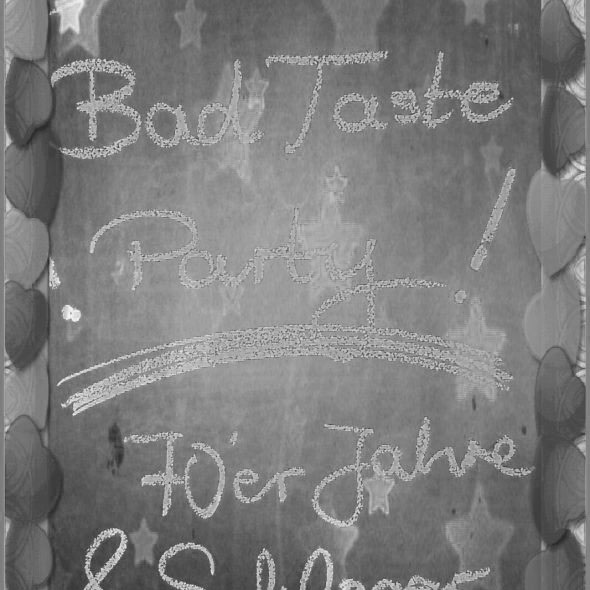 Bad Taste
Party!
70'er Jahre
& Schlager